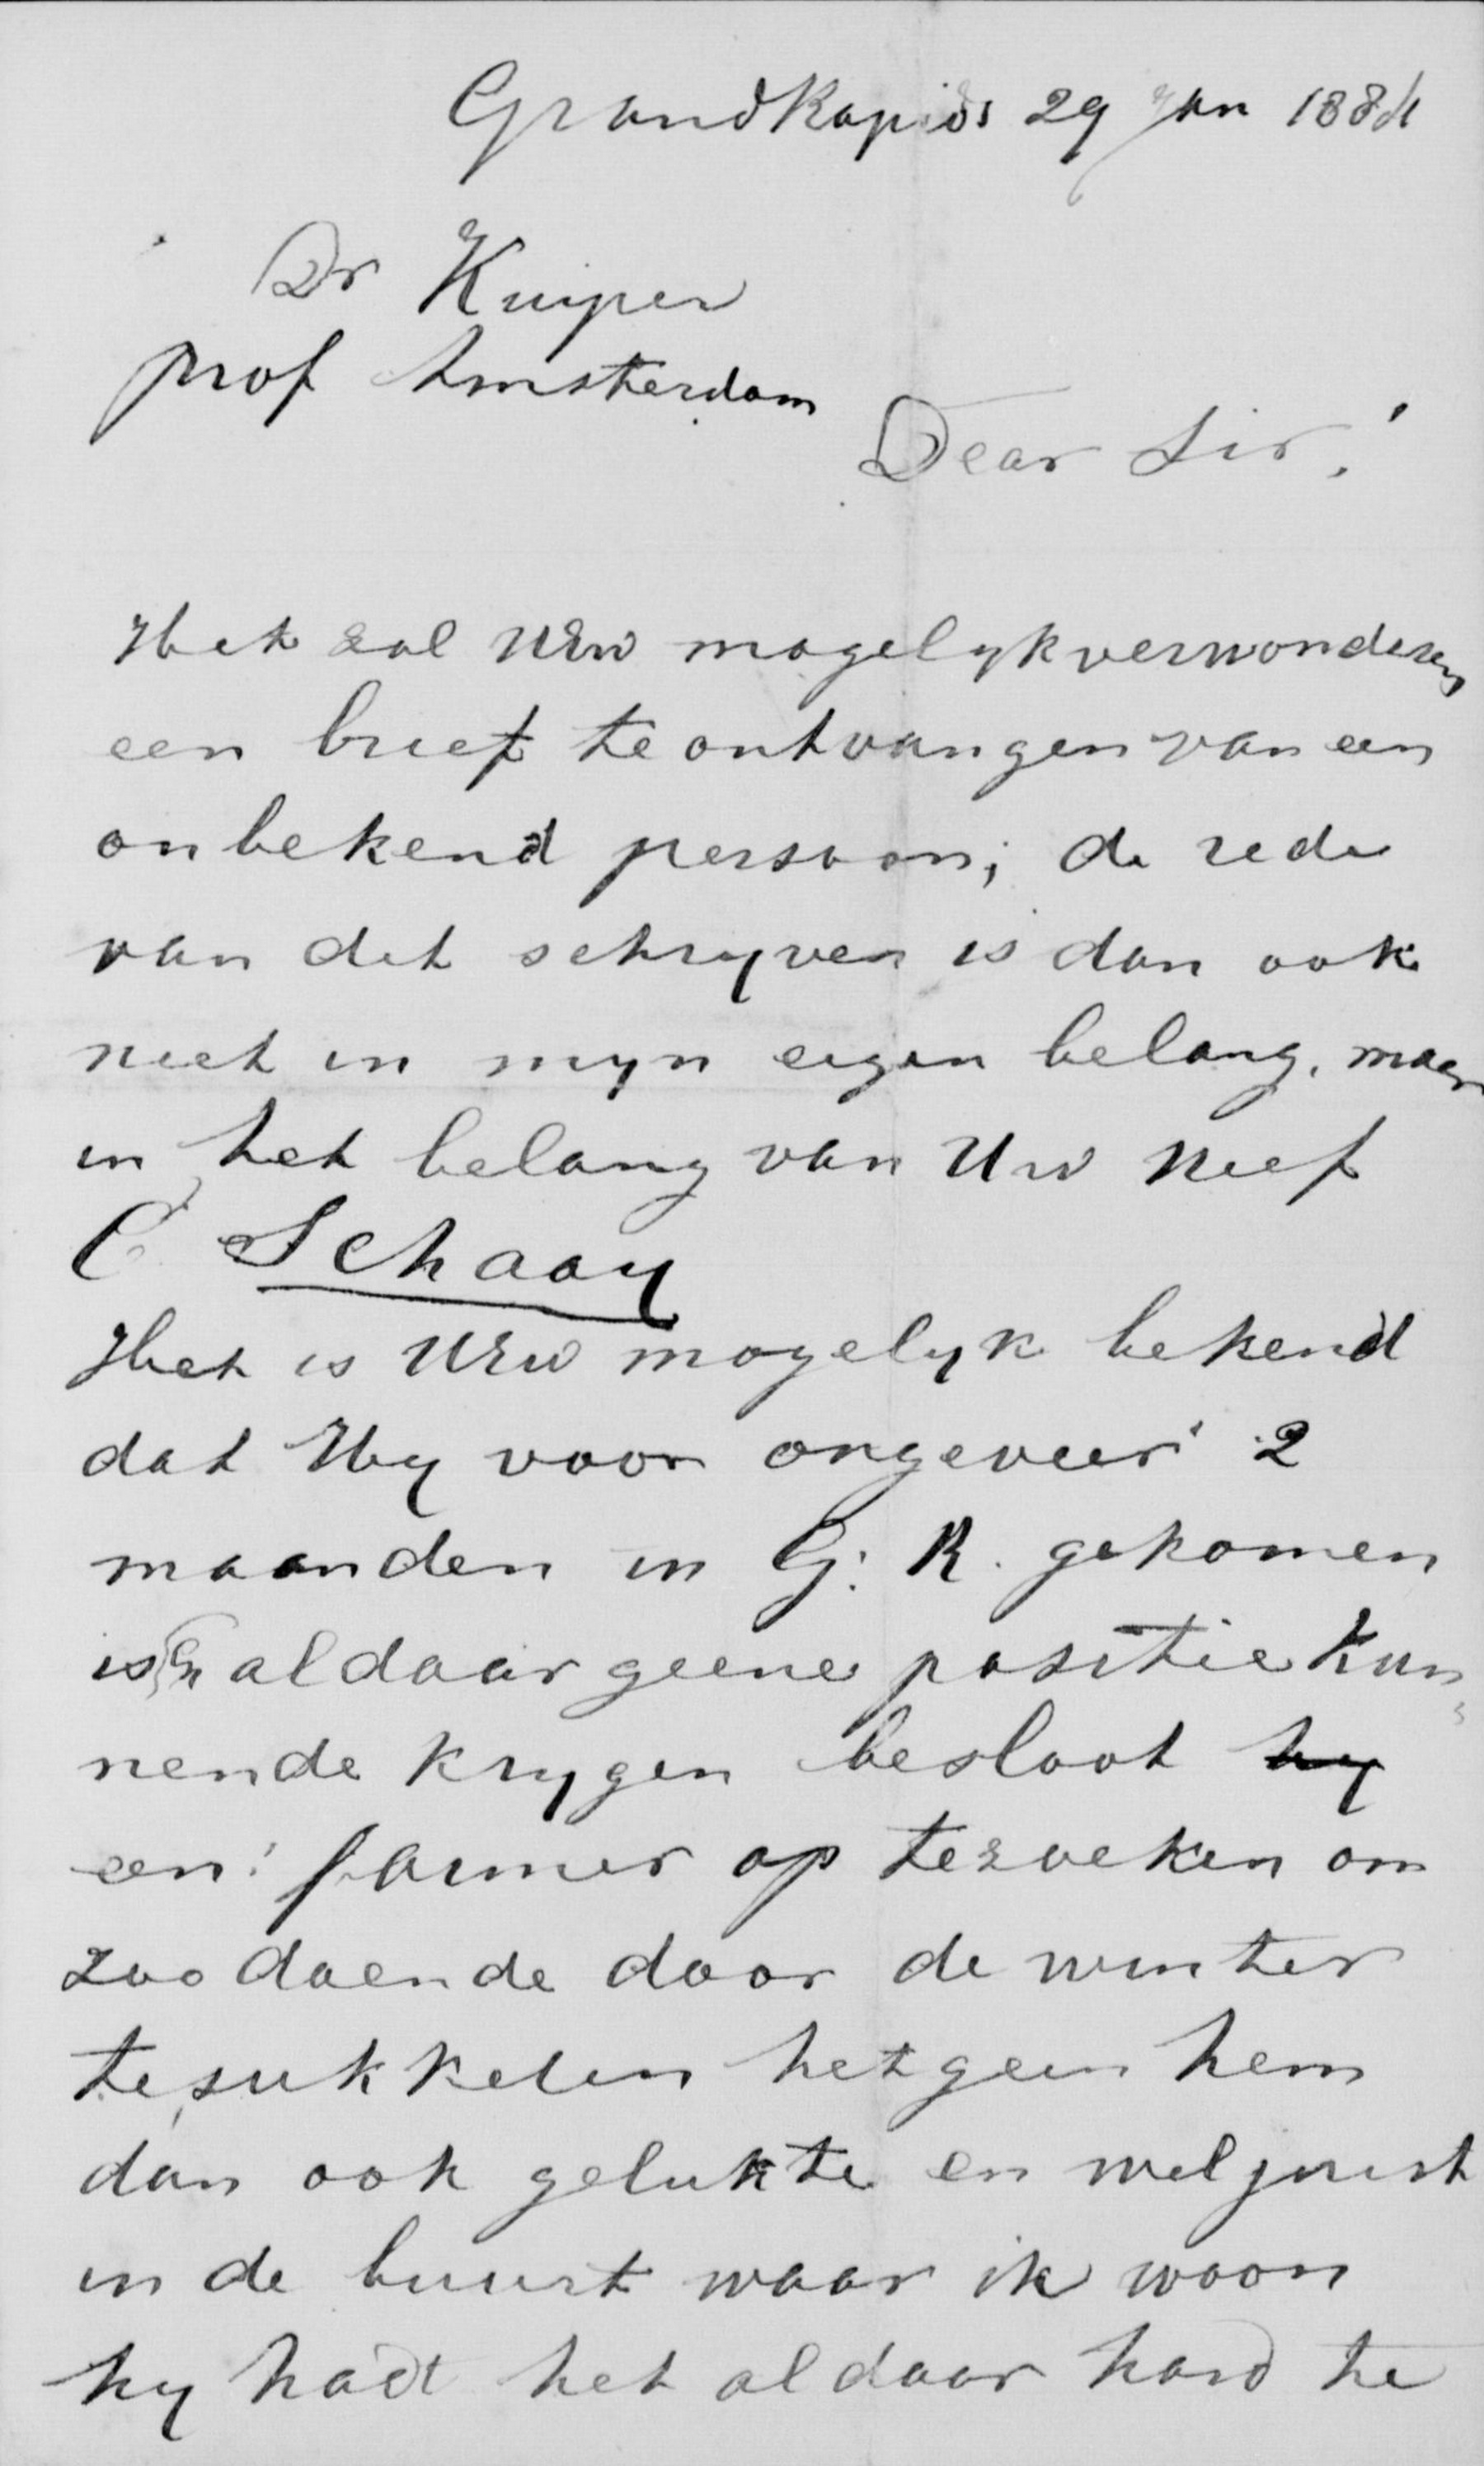 GrandRapids 29 Jan 1884
Dr Kuiper
prof Amsterdam
Dear Sir!
Het zal UEw mogelyk verwonderen
een brief te ontvangen van een
onbekend persoon; de rede
van dit schryven is dan ook
niet in myn eigen belang, maar
in het belang van Uw Neef
C Schaay
Het is UEw mogelyk bekend
dat Hy voor ongeveer 2
maanden in G. R. gekomen
is En aldaar geene positie kun
nende krygen besloot hy
een farmer op te zoeken om
zoo doende door de winter
te sukkelen hetgeen hem
dan ook gelukte en wel juist
in de buurt waar ik woon
hy hadt het aldaar hard te